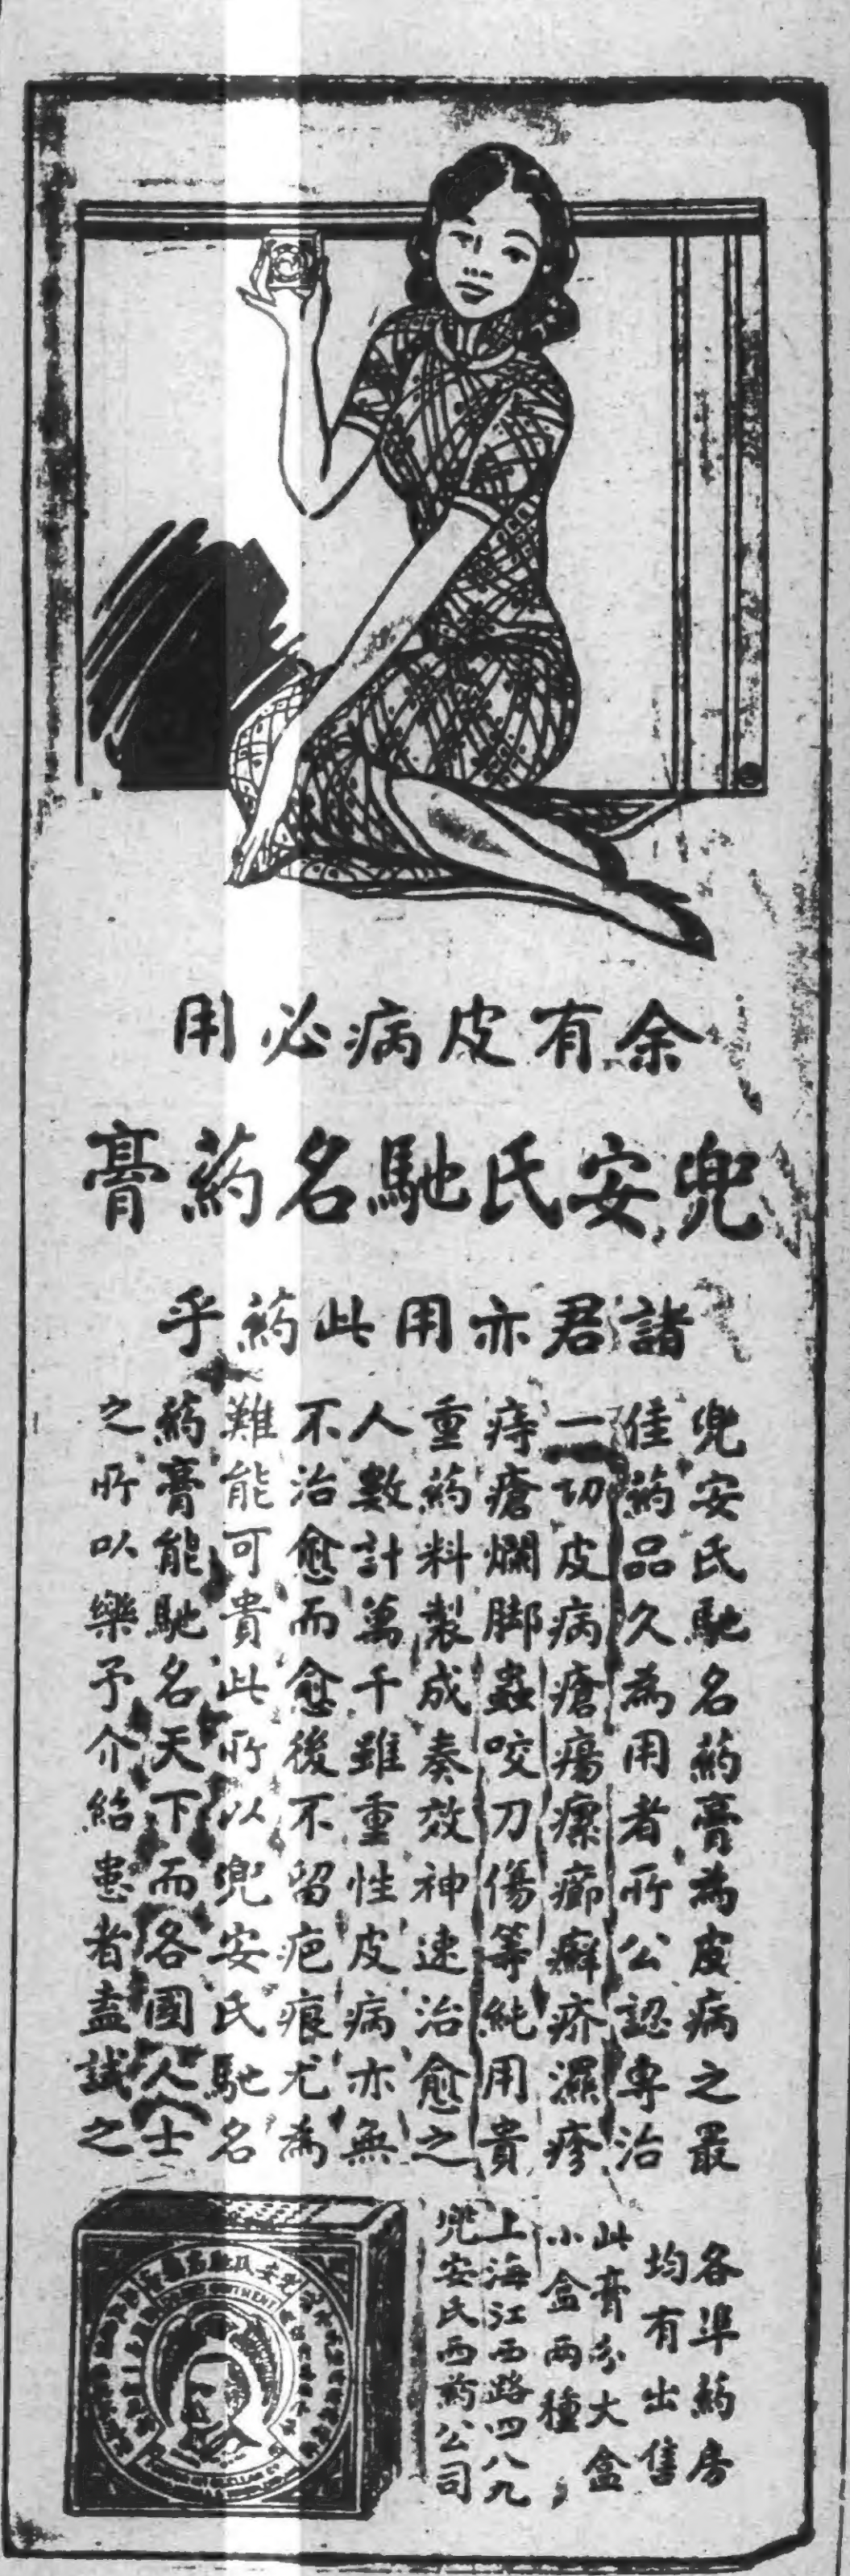 余有皮病必用
兜安氏馳名葯膏
諸君亦用此葯乎
兜安氏馳名葯膏為皮病之最
佳葯品久為用者所公認專治
一切皮病瘡瘍瘰癤癬疥濕疹
痔瘡爛脚蟲咬刀傷等純用貴
重葯料製成奏效神速治愈之
人數計萬千雖重性皮病亦無
不治愈而愈後不留疤痕尤為
難能可貴此所以兜安氏馳名
葯膏能馳名天下而各國人士
之所以樂予介紹患者盍試之
各埠葯房
均有出售
此膏分大盒
小盒兩種，
上海江西路四八九
兜安氏西葯公司
兜安氏馳名葯膏
OINTMENT